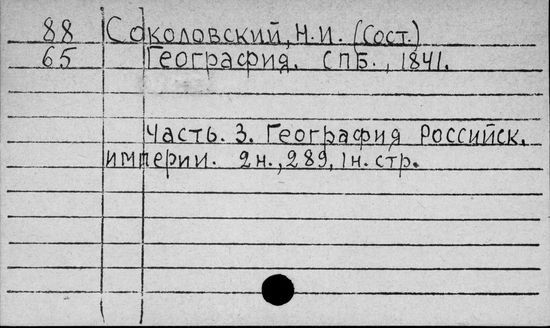 88 Соколовский, Н.И. (Сост.)
65 География. СПБ., 1841.
Часть. 3. География Российск.
империи. 2н., 289, 1н. стр.